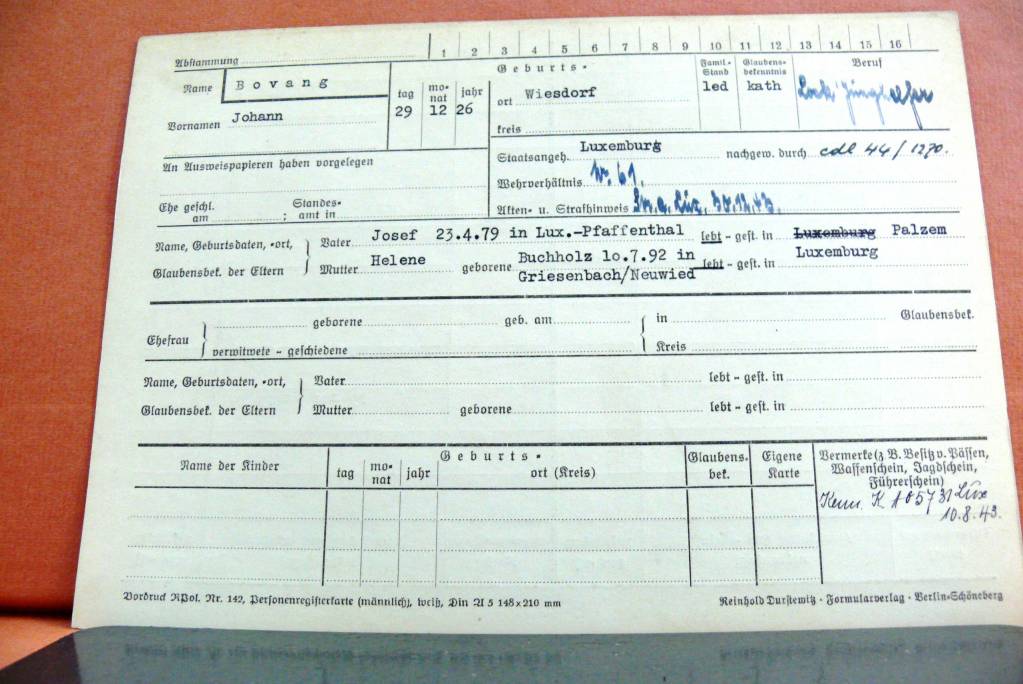 Abstammung 1 2 3 4 5 6 7 8 9 10 11 12 13 14 15 16
Name Bovang
Vornamen Johann
Geburts-
tag mo-nat jahr
29 12 26
ort Wiesdorf
kreis
Famil.-Stand
led
Glaubens-bekenntnis
kath
Beruf
An Ausweispapieren haben vorgelegen
Staatsangeh. Luxemburg nachgew. durch cdl 44/1270.
Wehrverhältnis W. 61.
Ehe geschl. am ; Standes-amt in
Akten- u. Strafhinweis
Name, Geburtsdaten, -ort,
Glaubensbek. der Eltern
Vater Josef 23.4.79 in Lux.-Pfaffenthal lebt - gest. in Luxemburg Palzem
Mutter Helene geborene Buchholz 1o.7.92 in lebt - gest. in Luxemburg
Griesenbach/Neuwied
Ehefrau
geborene geb. am in Glaubensbek.
verwitwete - geschiedene Kreis
Name, Geburtsdaten, -ort,
Glaubensbek. der Eltern
Vater lebt - gest. in
Mutter geborene lebt - gest. in
Name der Kinder
Geburts-
tag mo-nat jahr ort (Kreis)
Glaubens-bek.
Eigene Karte
Vermerke (z. B. Besitz v. Pässen,
Waffenschein, Jagdschein,
Führerschein)
Kenn. K A 05731 Lux
10.8.43.
Vordruck RPol. Nr. 142, Personenregisterkarte (männlich), weiß, Din A 5 148x210 mm
Reinhold Durstewitz - Formularverlag - Berlin-Schöneberg